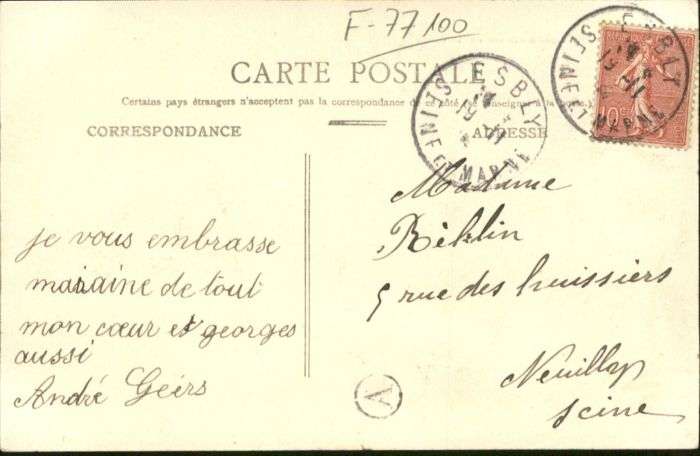 F-77100
CARTE POSTALE
Certains pays étrangers n'acceptent pas la correspondance de ce côté (se renseigner à la poste.)
CORRESPONDANCE
ADRESSE
ESBLY
SEINE ET MARNE
ESBLY
SEINE ET MARNE
10c
Madame
5 rue des huissiers
Neuilly
Seine
je vous embrasse
maraine de tout
mon cœur et georges
aussi
André Geirs
A